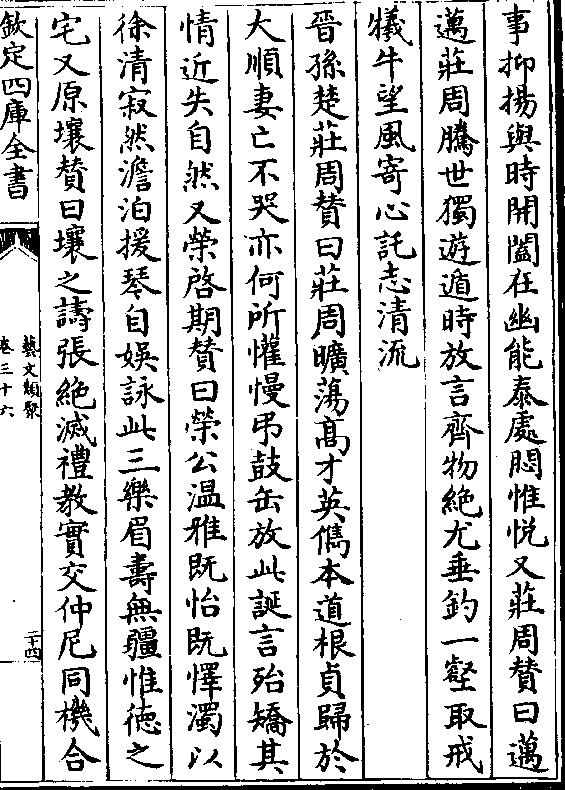 事抑揚與時開闔在幽能泰處悶惟悦又莊周賛曰邁
邁莊周騰世獨遊遁時放言齊物絶尤垂釣一壑取戒
犧牛望風寄心託志清流
晉孫楚莊周賛曰莊周曠蕩髙才英儁本道根貞歸於
大順妻亡不哭亦何所懽慢弔鼓缶放此誕言殆矯其
情近失自然又榮啓期賛曰榮公温雅既怡既懌濁以
徐清寂然澹泊援琴自娛詠此三樂眉壽無疆惟德之
宅又原壤賛曰壤之譸張絶滅禮教實交仲尼同機合
欽定四庫全書
藝文類聚
卷三十六
二十四